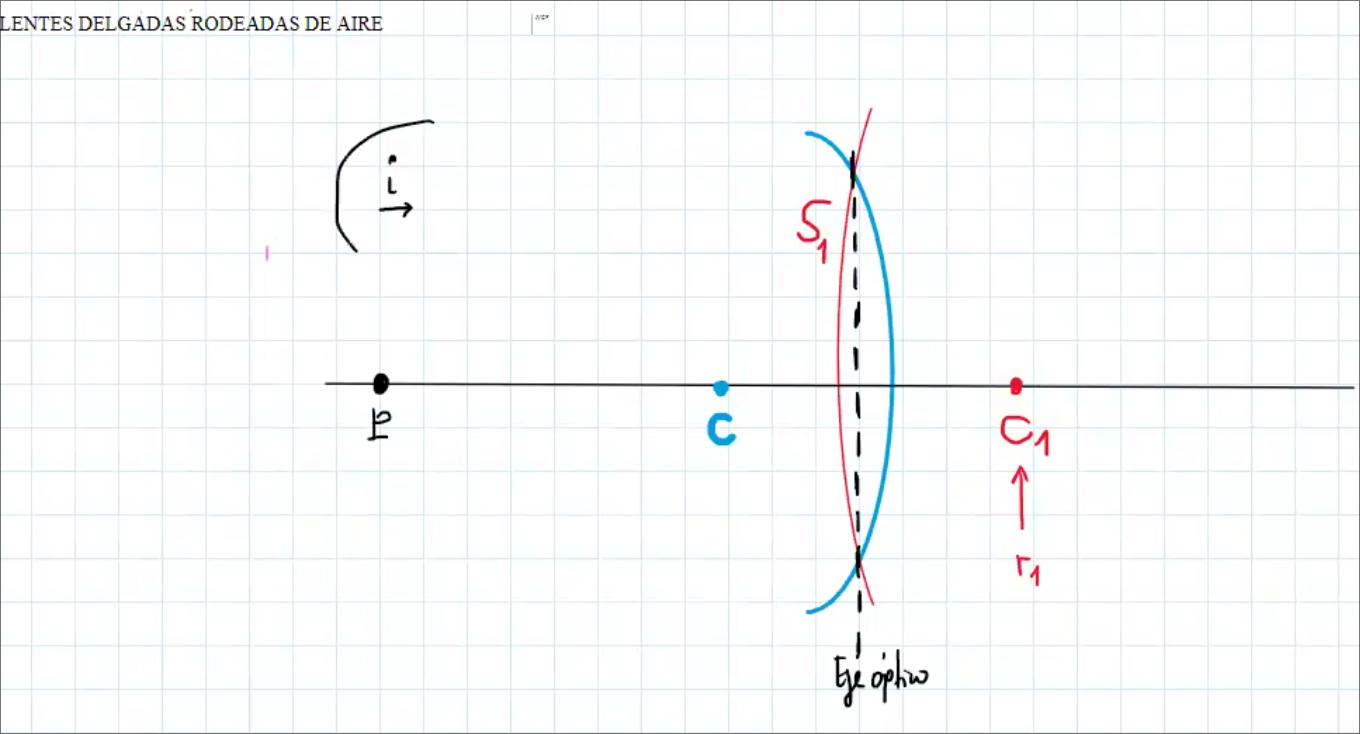 LENTES DELGADAS RODEADAS DE AIRE
i
S1
P
C
C1
r1
Eje óptico